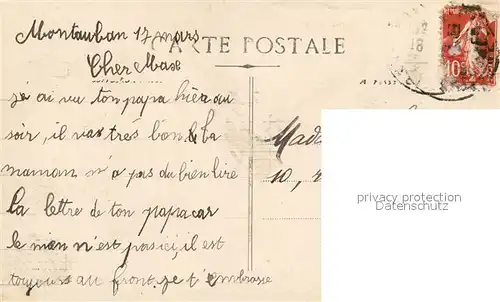 Montauban 17 mars
CARTE POSTALE
Cher Max
je ai vu ton papa hier au
soir, il vas très bon & la
maman n'a pas du bien lire
la lettre de ton papa car
le mien n'est pas ici, il est
toujours au front, je t'embrasse
Mada
10,
10
privacy protection
Datenschutz